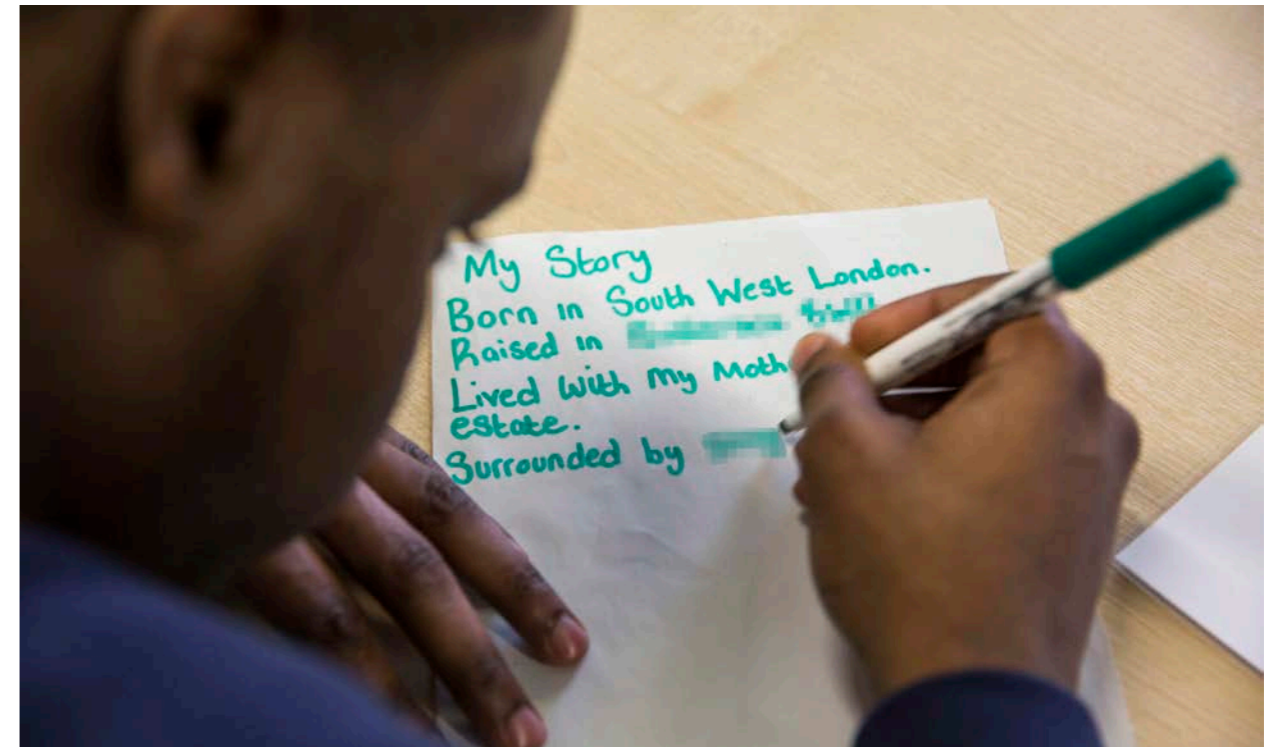 My Story
Born in South West London.
Raised in
Lived with my
estate.
Surrounded by